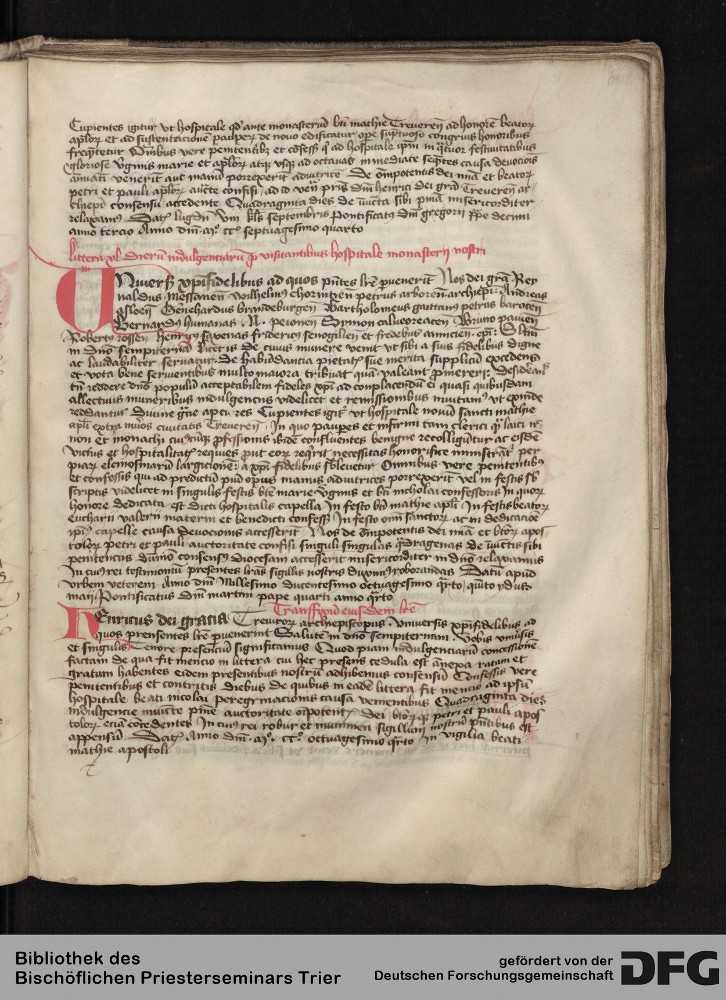 Cupientes igitur vt hospitale qd ante monasteriu bti mathie Treueren ad honore beator
aplor et ad sustentacione pauper de nouo edificatur ope suptuoso congruis honoribus
freqtetur Omibus vere penitentibz et cofess q ad hospitale ipm in qtuor festiuitatibus
gloriose Virginis marie et aplor atqz vsqz ad octauas inmediate septes causa deuocois
annuati venerit aut manu porrexerit adiutrice De omipotentis dei mia et beator
petri et pauli aplor aucte confisi ad id ven pris dni henrici dei gra Treueren ar
chiepi consensu accedente Quadraginta dies de iiucta sibi pnia misericorditer
relaxam9 Dat lugdn VIII kls septembris Pontificat9 dni gregorii ppe decimi
anno tercio Anno dni M° CC° septuagesimo quarto
littera vl dieru indulgenciaru p visitantibus hospitale monasterii nostri
Uniuersis xpifidelibus ad quos pntes lre puenerit Nos dei gra Rey
naldus Messanen Wilhelm9 petrus arboren archiepi Andreas
Genehardus brandeburgen Bartholomeus petrus
Bernard9 humanas Symon Bruno
Robert9 rossen henric9 fridericus senogallen et epi Salute
in dno sempiterna licet is de cuius munere venit vt sibi a suis fidelibus digne
ac laudabiliter seruatur De habundantia pietatis sue merita supplicu excedens
et vota bene seruientibus multo maiora tribuat qua valeant pmereri Desiderates
tn reddere dno populu acceptabilem fideles xpi ad complacendu ei quasi quibusdam
allectiuis muneribus indulgenciis videlicet et remissionibus inuitam9 vt exinde
reddantur Diuine gre apciores Cupientes igit vt hospitale nouu sancti mathie
apli extra muros ciuitatis Treueren In quo pauperes et infirmi tam clerici q laici nec
non et monachi cuiuscuqz pfessionis ibide confluentes benigne recolligutur ac eisde
victus et hospitalitatis requies put eor reqrit necessitas honorifice ministrat per
piar elemosinaru largicione a xpi fidelibus sbleuetur Omnibus vere penitentib9
et confessis qui ad predictu piu opus manus adiutrices porrexerit vel in festis sb
scriptis videlicet in singulis festis bte marie vginis et bti nicholai confessoris In quor
honore dedicata est dicti hospitalis capella In festo bti mathie apli In festis beator
eucharii valerii materni et benedicti confess In festo om sanctor ac in dedicacioe
ipi9 capelle causa deuocionis accesserit Nos de omipotentis dei mia et btor apos
tolor petri et pauli auctoritate confisi singuli singulas qdragenas de iiuctis sibi
penitenciis dumo consens9 diocesani accesserit misericorditer in dno relaxamus
In cui9 rei testimoniu presentes lras sigillis nostris duxim9 roborandas Datu apud
vrbem veterem Anno dni Millesimo ducentesimo octuagesimo qrto
maii Pontificatus dni martini pape quarti anno qrto
Transsumptu eiusdem lre
Henricus dei gracia Treueror archiepiscopus Uniuersis xpifidelibus ad
quos prensentes lre puenerint Salute in dno sempiternam Vobis vniuersis
et singulis Tenore presenciu significamus Quod piam indulgenciaru concessione
factam de qua fit mencio in littera cui hec presens cedula est annexa ratam et
gratam habentes eidem presentibus nostru adhibemus consensu Confessis vere
penitentibus et contritis diebus de quibus in eade littera fit mencio ad ipsu
hospitale beati nicolai peregrinacionis causa venientibus Quadraginta dies
indulgencie iniucte pnie auctoritate oipotentis Dei btorqz petri et pauli apos
tolor etia concedentes In cui9 rei robur et munimen sigillum nostru pntibus est
appensu Dat Anno dni M° CC° octuagesimo qrto In vigilia beati
mathie apostoli
Bibliothek des
Bischöflichen Priesterseminars Trier
gefördert von der
Deutschen Forschungsgemeinschaft
DFG